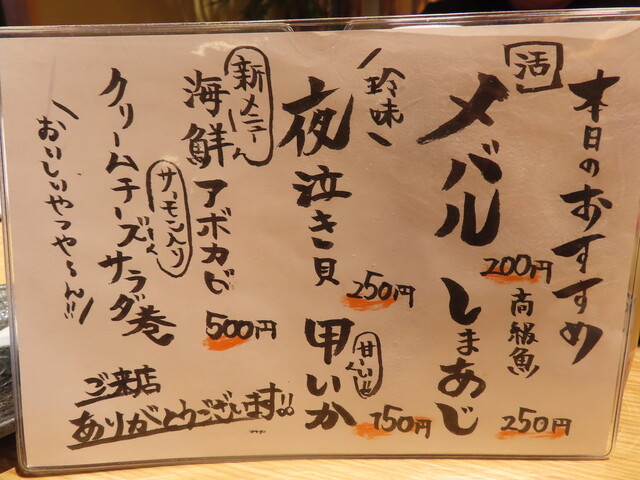 本日のおすすめ
活
メバル
200円
高級魚
しまあじ
250円
珍味
夜泣き貝
250円
甘ーい!!
甲いか
150円
新メニューん
海鮮アボカド
500円
サーモン入り
クリームチーズサラダ巻
おいしいやつやーん!!
ご来店
ありがとうございます!!